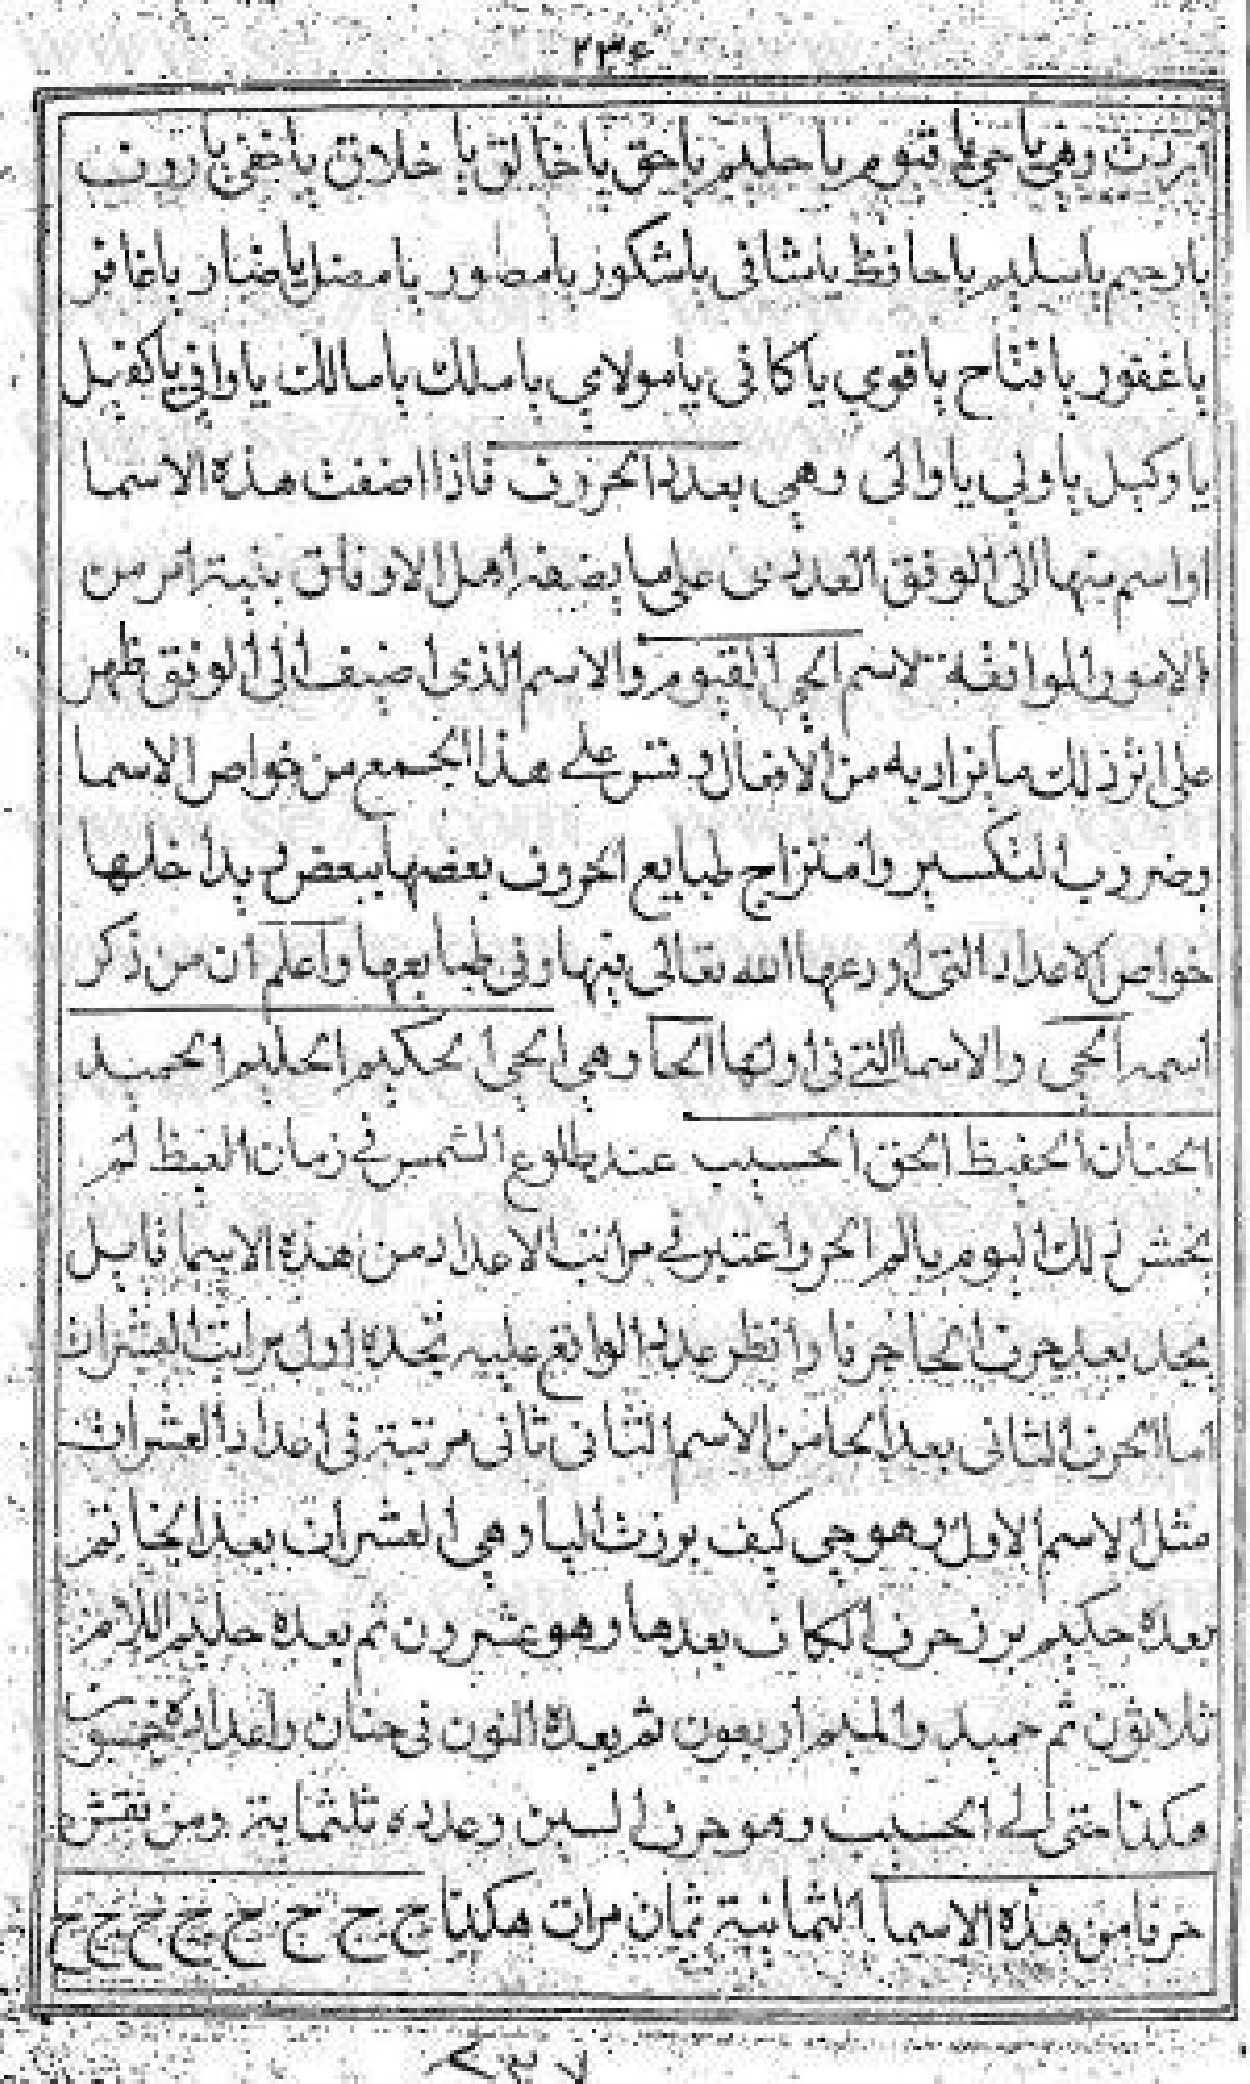 ٢٣٦
اردت وهي يا حي يا قيوم يا حليم يا حق يا خالق يا خلاق يا خفي يا روف
يا رحيم يا سليم يا حافظ يا شافي يا شكور يا مصور يا مضل يا ضار يا غافر
يا غفور يا فتاح يا قوي يا كافي يا مولاي يا ملك يا مالك يا وافي يا كفيل
يا وكيل يا ولي يا والي وهي بعدد الحروف فاذا اضفت هذه الاسما
او اسم منها الى الوفق العددي على ما يضعه اهل الاوفاق بنية امر من
الامور الموافقة لاسم الحي القيوم والاسم الذي اضيف الى الوفق ظهر
على اثر ذلك ما يراد به من الافعال وقس على هذا الجمع من خواص الاسما
وضروب التكسير وامتزاج طبايع الحروف بعضها ببعض يداخلها
خواص الاعداد التي اودعها الله تعالى فيها وفي طبايعها واعلم ان من ذكر
اسمه الحي والاسما التي في اولها الحا وهي الحي الحكيم الحليم الحميد
الحنان الحفيظ الحق الحسيب عند طلوع الشمس في زمان القيظ لم
يخش ذلك اليوم بالم الحر واعتبر في مراتب الاعداد من هذه الاسما
بعد حرف الحا حرفا وانظر عدده الواقع عليه تجده اول مراتب العشرات
اما الحرف الثاني بعد الحا من الاسم الثاني ثاني مرتبة في اعداد العشرات
مثل الاسم الاول وهو حي كيف برزت اليا وهي العشرات بعد الحا ثم
بعده حكيم برز حرف الكاف بعدها وهو عشرون ثم بعده حليم اللام
ثلاثون ثم حميد والميم اربعون ثم بعده النون في حنان واعداده خمسون
هكذا حتى الى الحسيب وهو حرف السين وعدده ثلثماية ومن نقش
حرفا من هذه الاسما الثمانية ثمان مرات هكذا ح ح ح ح ح ح ح ح